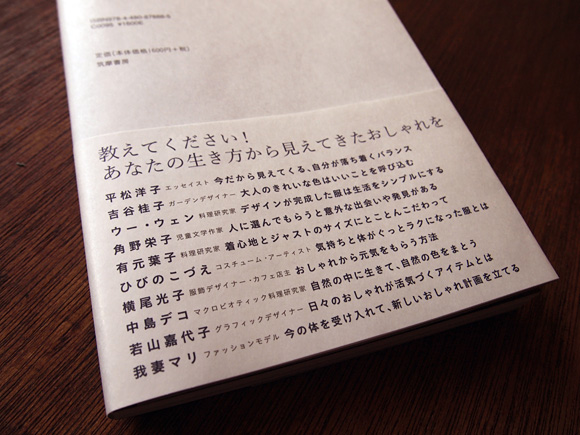 ISBN978-4-480-87888-5
C0095 ¥1600E
定価(本体価格1600円+税)
筑摩書房
教えてください!
あなたの生き方から見えてきたおしゃれを
平松洋子 エッセイスト 今だから見えてくる、自分が落ち着くバランス
吉谷桂子 ガーデンデザイナー 大人のきれいな色はいいことを呼び込む
ウー・ウェン 料理研究家 デザインが完成した服は生活をシンプルにする
角野栄子 児童文学作家 人に選んでもらうと意外な出会いや発見がある
有元葉子 料理研究家 着心地とジャストのサイズにとことんこだわって
ひびのこづえ コスチューム・アーティスト 気持ちと体がぐっとラクになった服とは
横尾光子 服飾デザイナー・カフェ店主 おしゃれから元気をもらう方法
中島デコ マクロビオティック料理研究家 自然の中に生きて、自然の色をまとう
若山嘉代子 グラフィックデザイナー 日々のおしゃれが活気づくアイテムとは
我妻マリ ファッションモデル 今の体を受け入れて、新しいおしゃれ計画を立てる